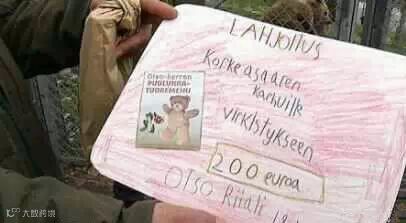 LAHJOITUS
Korkeasaaren
karhuille
virkistykseen
200 euroa
Otso Riiali
Otso-herran
PUOLUKKA-
TUOREMEHU
大数跨境